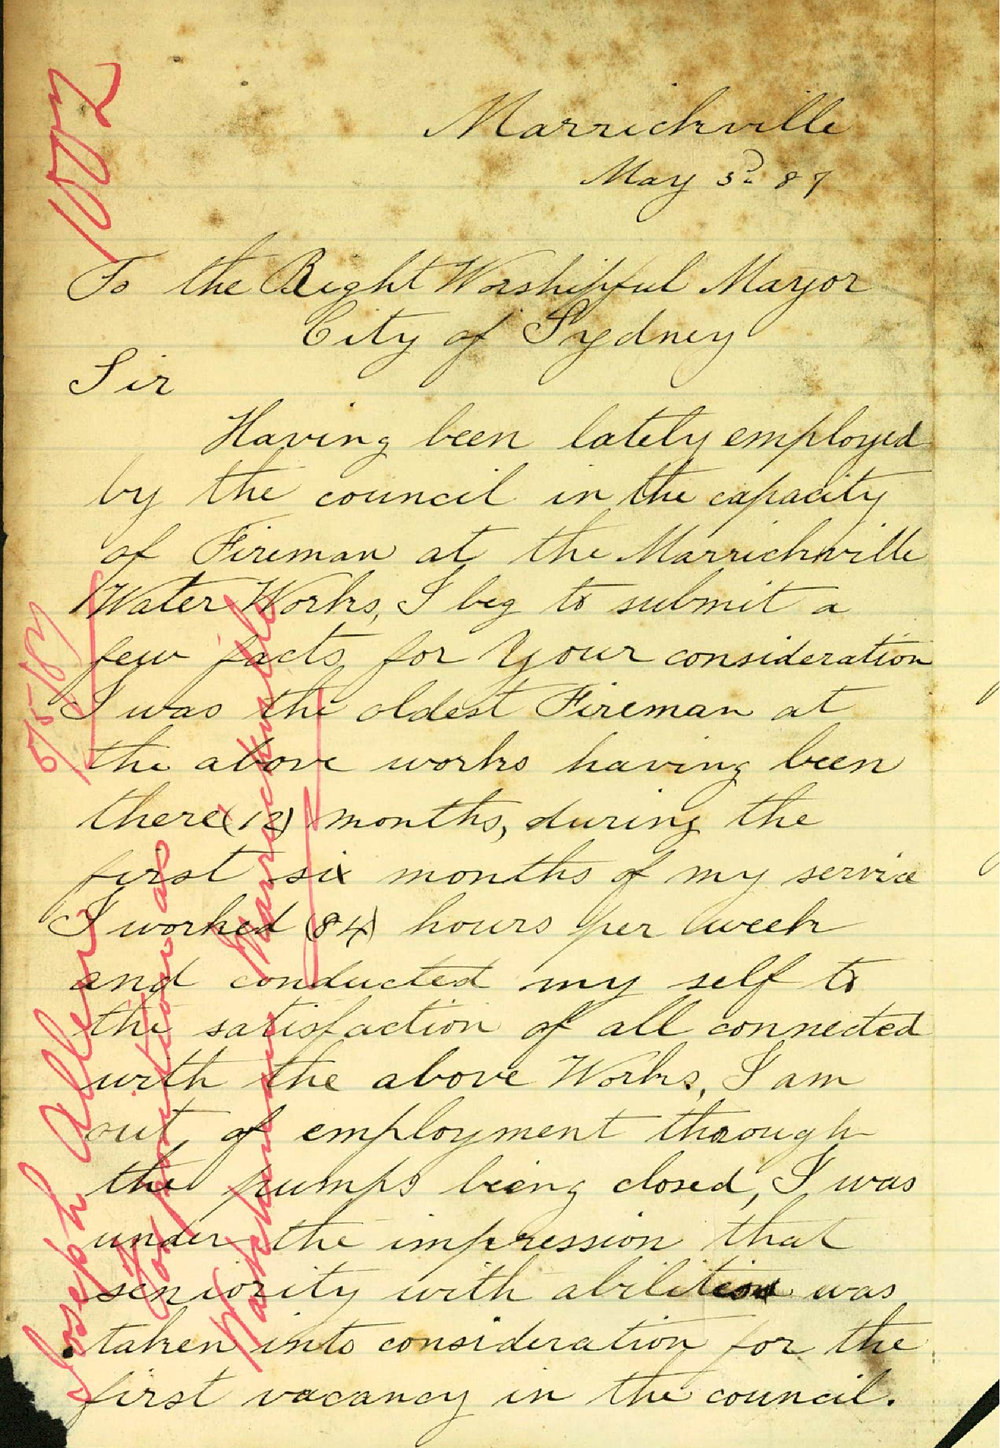 1002
Marrickville
May 3d 87
To the Right Worshipful Mayor
City of Sydney
Sir
Having been lately employed
by the council in the capacity
of Fireman at the Marrickville
Water Works, I beg to submit a
few facts for Your consideration
I was the oldest Fireman at
the above works having been
there (12) months, during the
first six months of my service
I worked (84) hours per week
and conducted my self to
the satisfaction of all connected
with the above Works, I am
out of employment through
the pumps being closed, I was
under the impression that
seniority with abilities was
taken into consideration for the
first vacancy in the council.
5/5/87
Joseph Allen
For position as
Watchman Marrickville